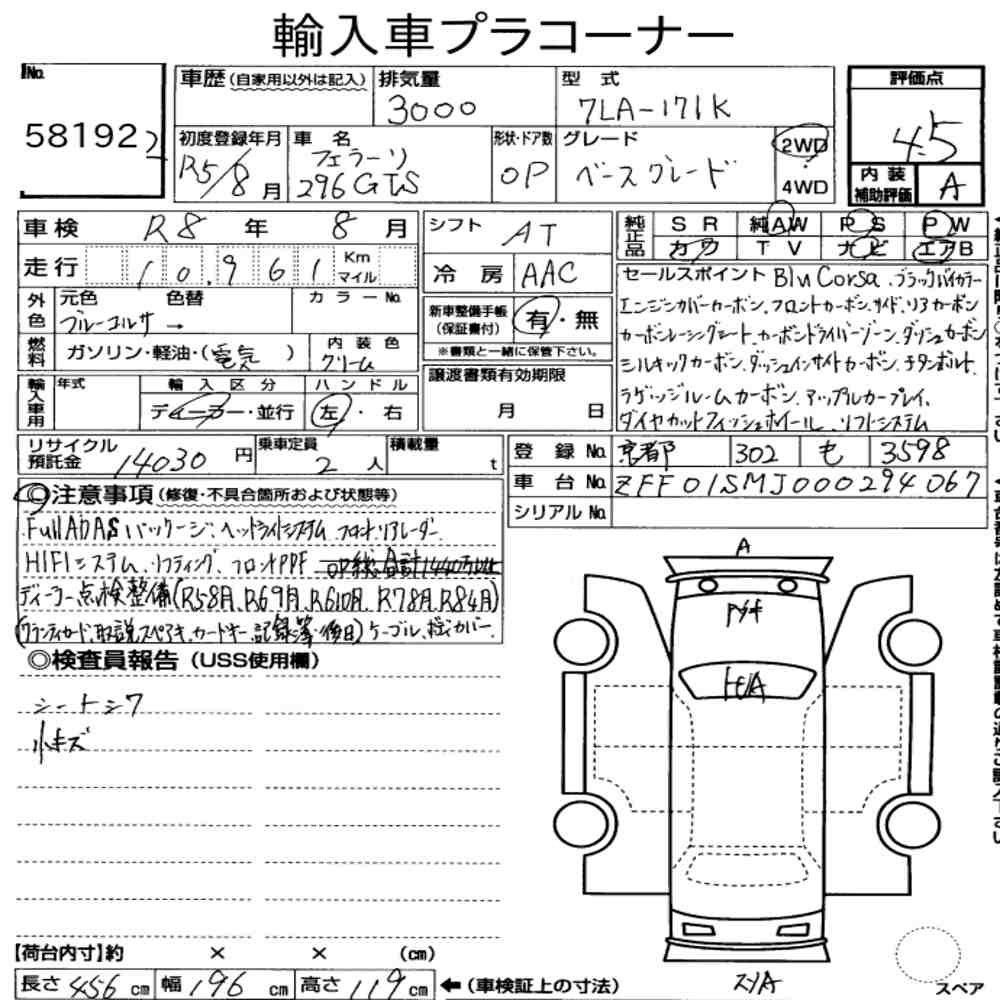 輸入車プラコーナー
No. 58192 2
車歴(自家用以外は記入) 排気量 3000 型式 7LA-171K
評価点 4.5
初度登録年月 R5/8月 車名 フェラーリ 296GTS 形状・ドア数 OP グレード ベースグレード 2WD 4WD
内装補助評価 A
車検 R8年 8月
シフト AT
純正品 SR 純AW PS PW
カワ TV ナビ エアB
走行 10,961 Km マイル
冷房 AAC
外色 元色 色替 カラーNo.
ブルーコルサ →
新車整備手帳(保証書付) 有・無
※書類と一緒に保管下さい。
燃料 ガソリン・軽油・(電気) 内装色 クリーム
セールスポイント Blu Corsa、ブラックバイカラー
エンジンカバーカーボン、フロントカーボン、サイド、リアカーボン
カーボンレーシングシート、カーボンドライバーゾーン、ダッシュカーボン
シルキックカーボン、ダッシュインサイドカーボン、チタンボルト、
ラゲッジルームカーボン、アップルカープレイ、
ダイヤカットフィニッシュホイール、リフトシステム
輸入車用 年式 輸入区分 ディーラー・並行 ハンドル 左・右
譲渡書類有効期限 月 日
リサイクル預託金 14030円 乗車定員 2人 積載量 t
登録No. 京都 302 も 3598
車台No. ZFF01SMJ000294067
シリアルNo.
◎注意事項(修復・不具合箇所および状態等)
Full ADASパッケージ、ヘッドライトシステム、フロント、リアレーダー
HIFIシステム、リフティング、フロントPPF OP総合計1440万以上
ディーラー点検整備(R5 8月、R6 9月、R6 10月、R7 8月、R8 4月)
(ワランティカード、取説、スペアキー、カードキー、記録簿・後日)ケーブル、ボディカバー
◎検査員報告(USS使用欄)
シートシワ
小キズ
A
トビA
【荷台内寸】約 × × (cm)
長さ 456cm 幅 196cm 高さ 119cm ←(車検証上の寸法)
スリA
スペア